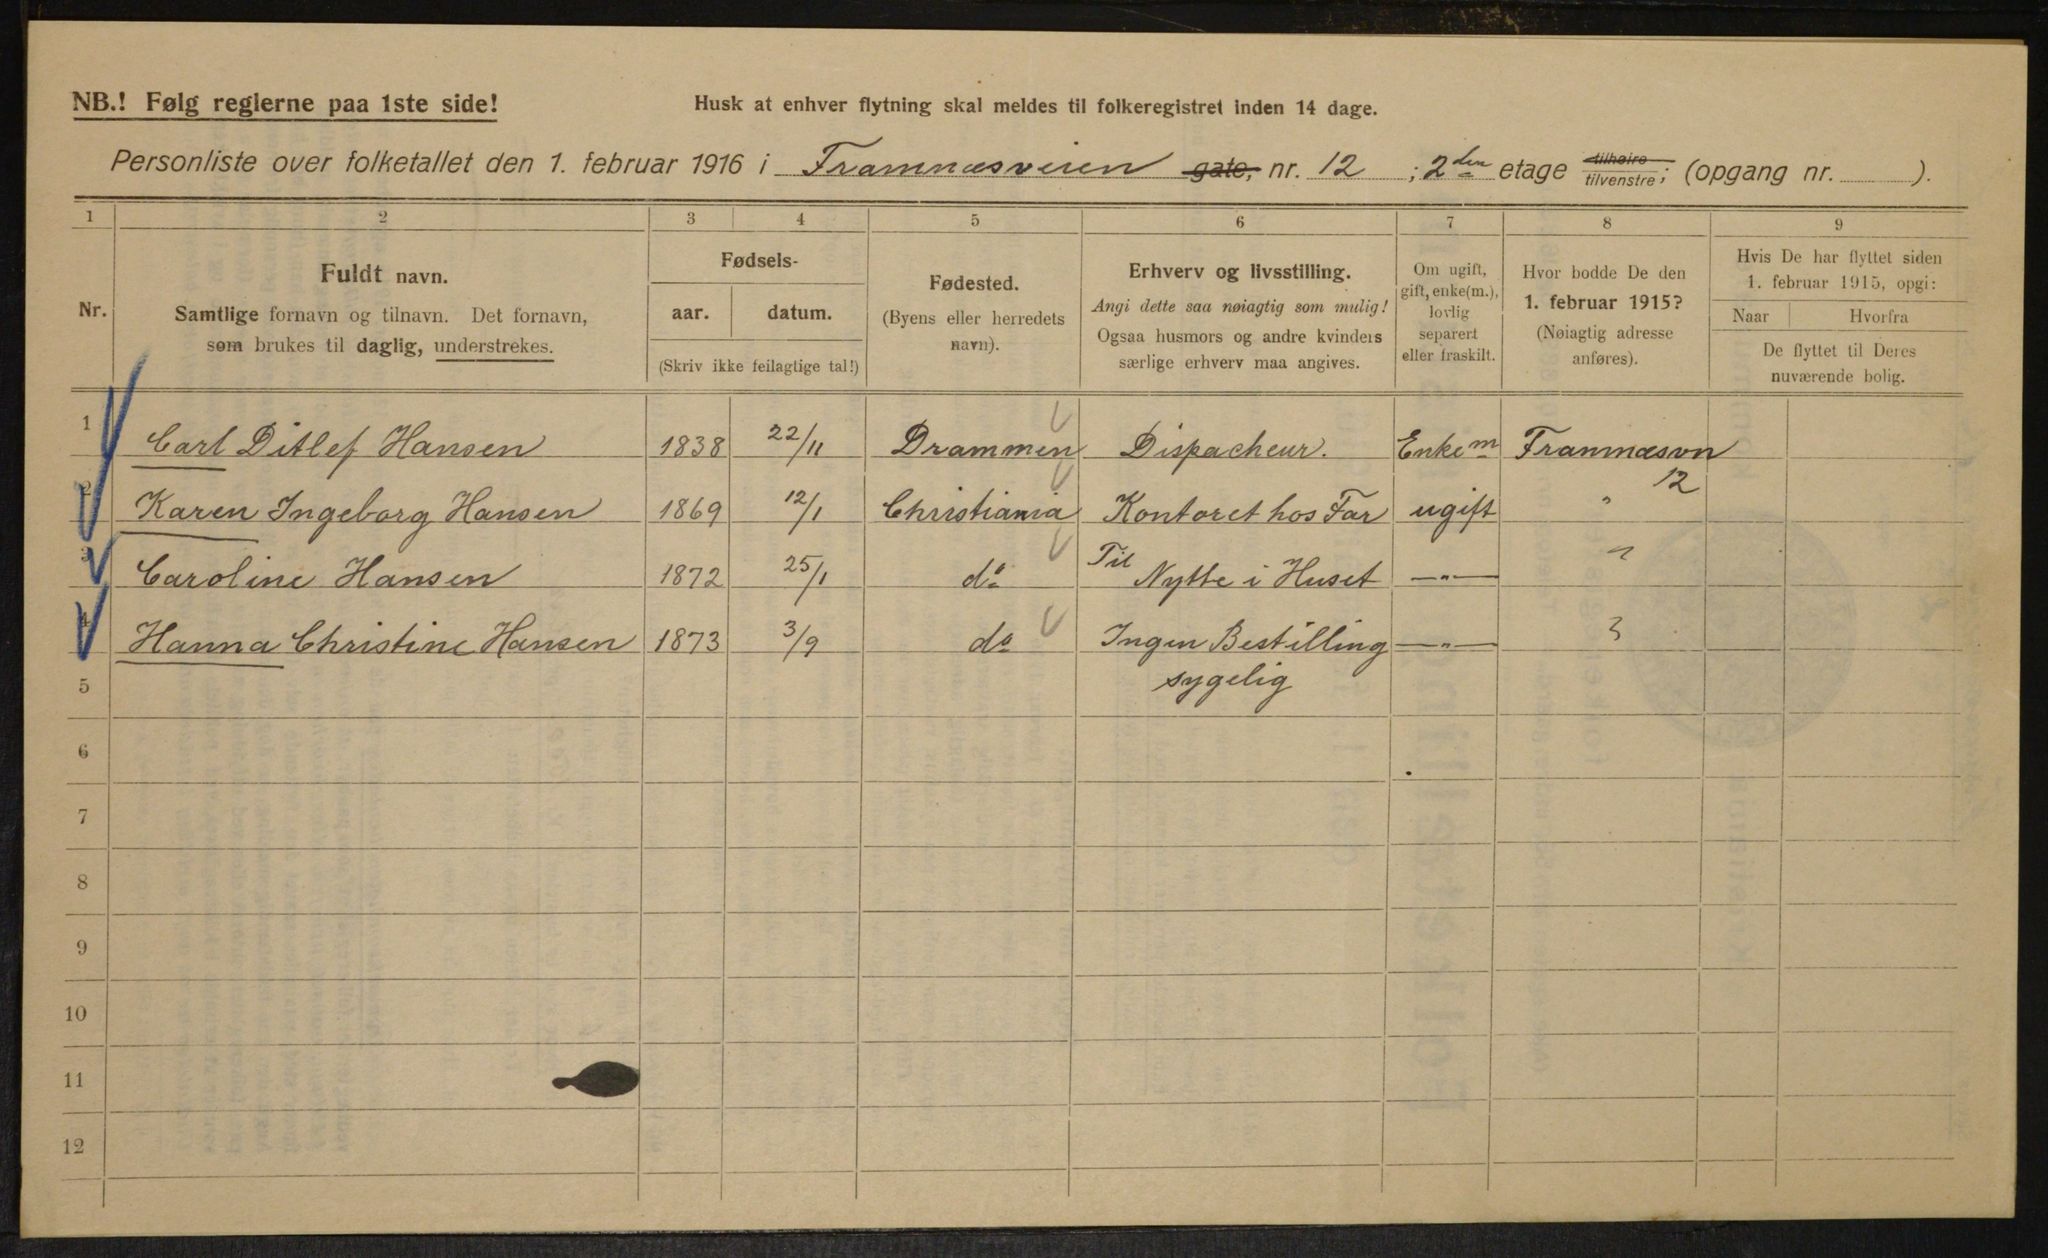 NB.! Følg reglerne paa 1ste side!
Husk at enhver flytning skal meldes til folkeregistret inden 14 dage.
Personliste over folketallet den 1. februar 1916 i Framnæsveien gate, nr. 12 ; 2den etage tilhøire tilvenstre; (opgang nr. ).
1 2 3 4 5 6 7 8 9
Nr.
Fuldt navn.
Samtlige fornavn og tilnavn. Det fornavn,
som brukes til daglig, understrekes.
Fødsels-
aar. datum.
(Skriv ikke feilagtige tal!)
Fødested.
(Byens eller herredets
navn).
Erhverv og livsstilling.
Angi dette saa nøiagtig som mulig!
Ogsaa husmors og andre kvinders
særlige erhverv maa angives.
Om ugift,
gift, enke(m.),
lovlig
separert
eller fraskilt.
Hvor bodde De den
1. februar 1915?
(Nøiagtig adresse
anføres).
Hvis De har flyttet siden
1. februar 1915, opgi:
Naar Hvorfra
De flyttet til Deres
nuværende bolig.
1 Carl Ditlef Hansen 1838 22/11 Drammen Dispacheur. Enkem Framnæsvn
12
2 Karen Ingeborg Hansen 1869 12/1 Christiania Kontoret hos Far ugift "
3 Caroline Hansen 1872 25/1 do Til Nytte i Huset —"— "
4 Hanna Christine Hansen 1873 3/9 do Ingen Bestilling —"— "
sygelig
5
6
7
8
9
10
11
12